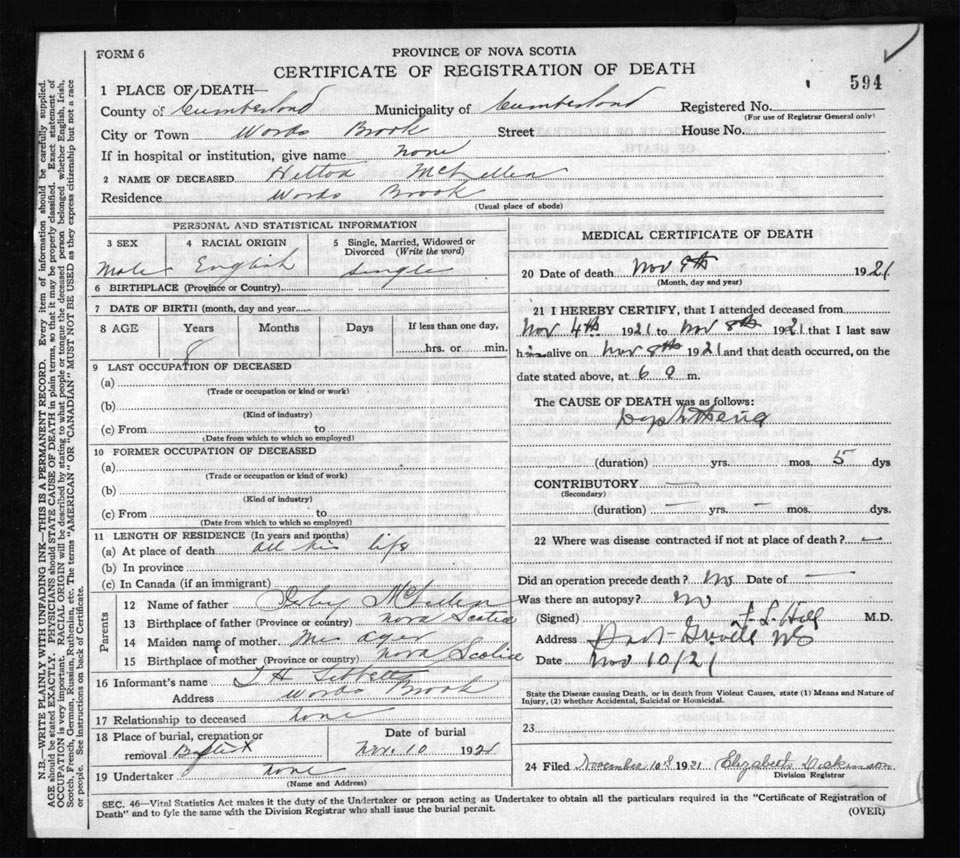 FORM 6
PROVINCE OF NOVA SCOTIA
CERTIFICATE OF REGISTRATION OF DEATH
594
1 PLACE OF DEATH—
County of Cumberland Municipality of Cumberland Registered No.
(For use of Registrar General only)
City or Town Words Brook Street House No.
If in hospital or institution, give name none
2 NAME OF DECEASED Hilton McLellan
Residence Words Brook
(Usual place of abode)
PERSONAL AND STATISTICAL INFORMATION
3 SEX 4 RACIAL ORIGIN 5 Single, Married, Widowed or Divorced (Write the word)
Male English Single
6 BIRTHPLACE (Province or Country)
7 DATE OF BIRTH (month, day and year)
8 AGE Years Months Days If less than one day,
8 hrs. or min.
9 LAST OCCUPATION OF DECEASED
(a)
(Trade or occupation or kind or work)
(b)
(Kind of industry)
(c) From to
(Date from which to which so employed)
10 FORMER OCCUPATION OF DECEASED
(a)
(Trade or occupation or kind or work)
(b)
(Kind of industry)
(c) From to
(Date from which to which so employed)
11 LENGTH OF RESIDENCE (In years and months)
(a) At place of death all his life
(b) In province
(c) In Canada (if an immigrant)
Parents
12 Name of father
13 Birthplace of father (Province or country) Nova Scotia
14 Maiden name of mother
15 Birthplace of mother (Province or country) Nova Scotia
16 Informant's name T H Tibbetts
Address Words Brook
17 Relationship to deceased none
18 Place of burial, cremation or removal Baptist
Date of burial
Nov. 10 1921
19 Undertaker none
(Name and Address)
MEDICAL CERTIFICATE OF DEATH
20 Date of death Nov 9th 1921
(Month, day and year)
21 I HEREBY CERTIFY, that I attended deceased from
Nov 4th 1921 to Nov 8th 1921 that I last saw
him alive on Nov 8th 1921 and that death occurred, on the
date stated above, at 6 a m.
The CAUSE OF DEATH was as follows:
Diphtheria
(duration) yrs. mos. 5 dys
CONTRIBUTORY —
(Secondary)
(duration) — yrs. — mos. dys.
22 Where was disease contracted if not at place of death? —
Did an operation precede death? no Date of —
Was there an autopsy? no
(Signed) Hill M.D.
Address Port Greville NS
Date Nov 10/21
State the Disease causing Death, or in death from Violent Causes, state (1) Means and Nature of
Injury, (2) whether Accidental, Suicidal or Homicidal.
23
24 Filed November 10th 1921 Elizabeth Dickinson
Division Registrar
SEC. 46—Vital Statistics Act makes it the duty of the Undertaker or person acting as Undertaker to obtain all the particulars required in the "Certificate of Registration of
Death" and to fyle the same with the Division Registrar who shall issue the burial permit.
(OVER)
N.B.—WRITE PLAINLY WITH UNFADING INK—THIS IS A PERMANENT RECORD. Every item of information should be carefully supplied.
AGE should be stated EXACTLY. PHYSICIANS should STATE CAUSE OF DEATH in plain terms, so that it may be properly classified. Exact statement of
OCCUPATION is very important. RACIAL ORIGIN will be described by stating to what people or tongue the deceased person belonged whether English, Irish,
Scotch, French, German, Russian, Ruthenian, etc. The terms "AMERICAN" or "CANADIAN" MUST NOT BE USED as they express citizenship but not a race
or people. See instructions on back of Certificate.